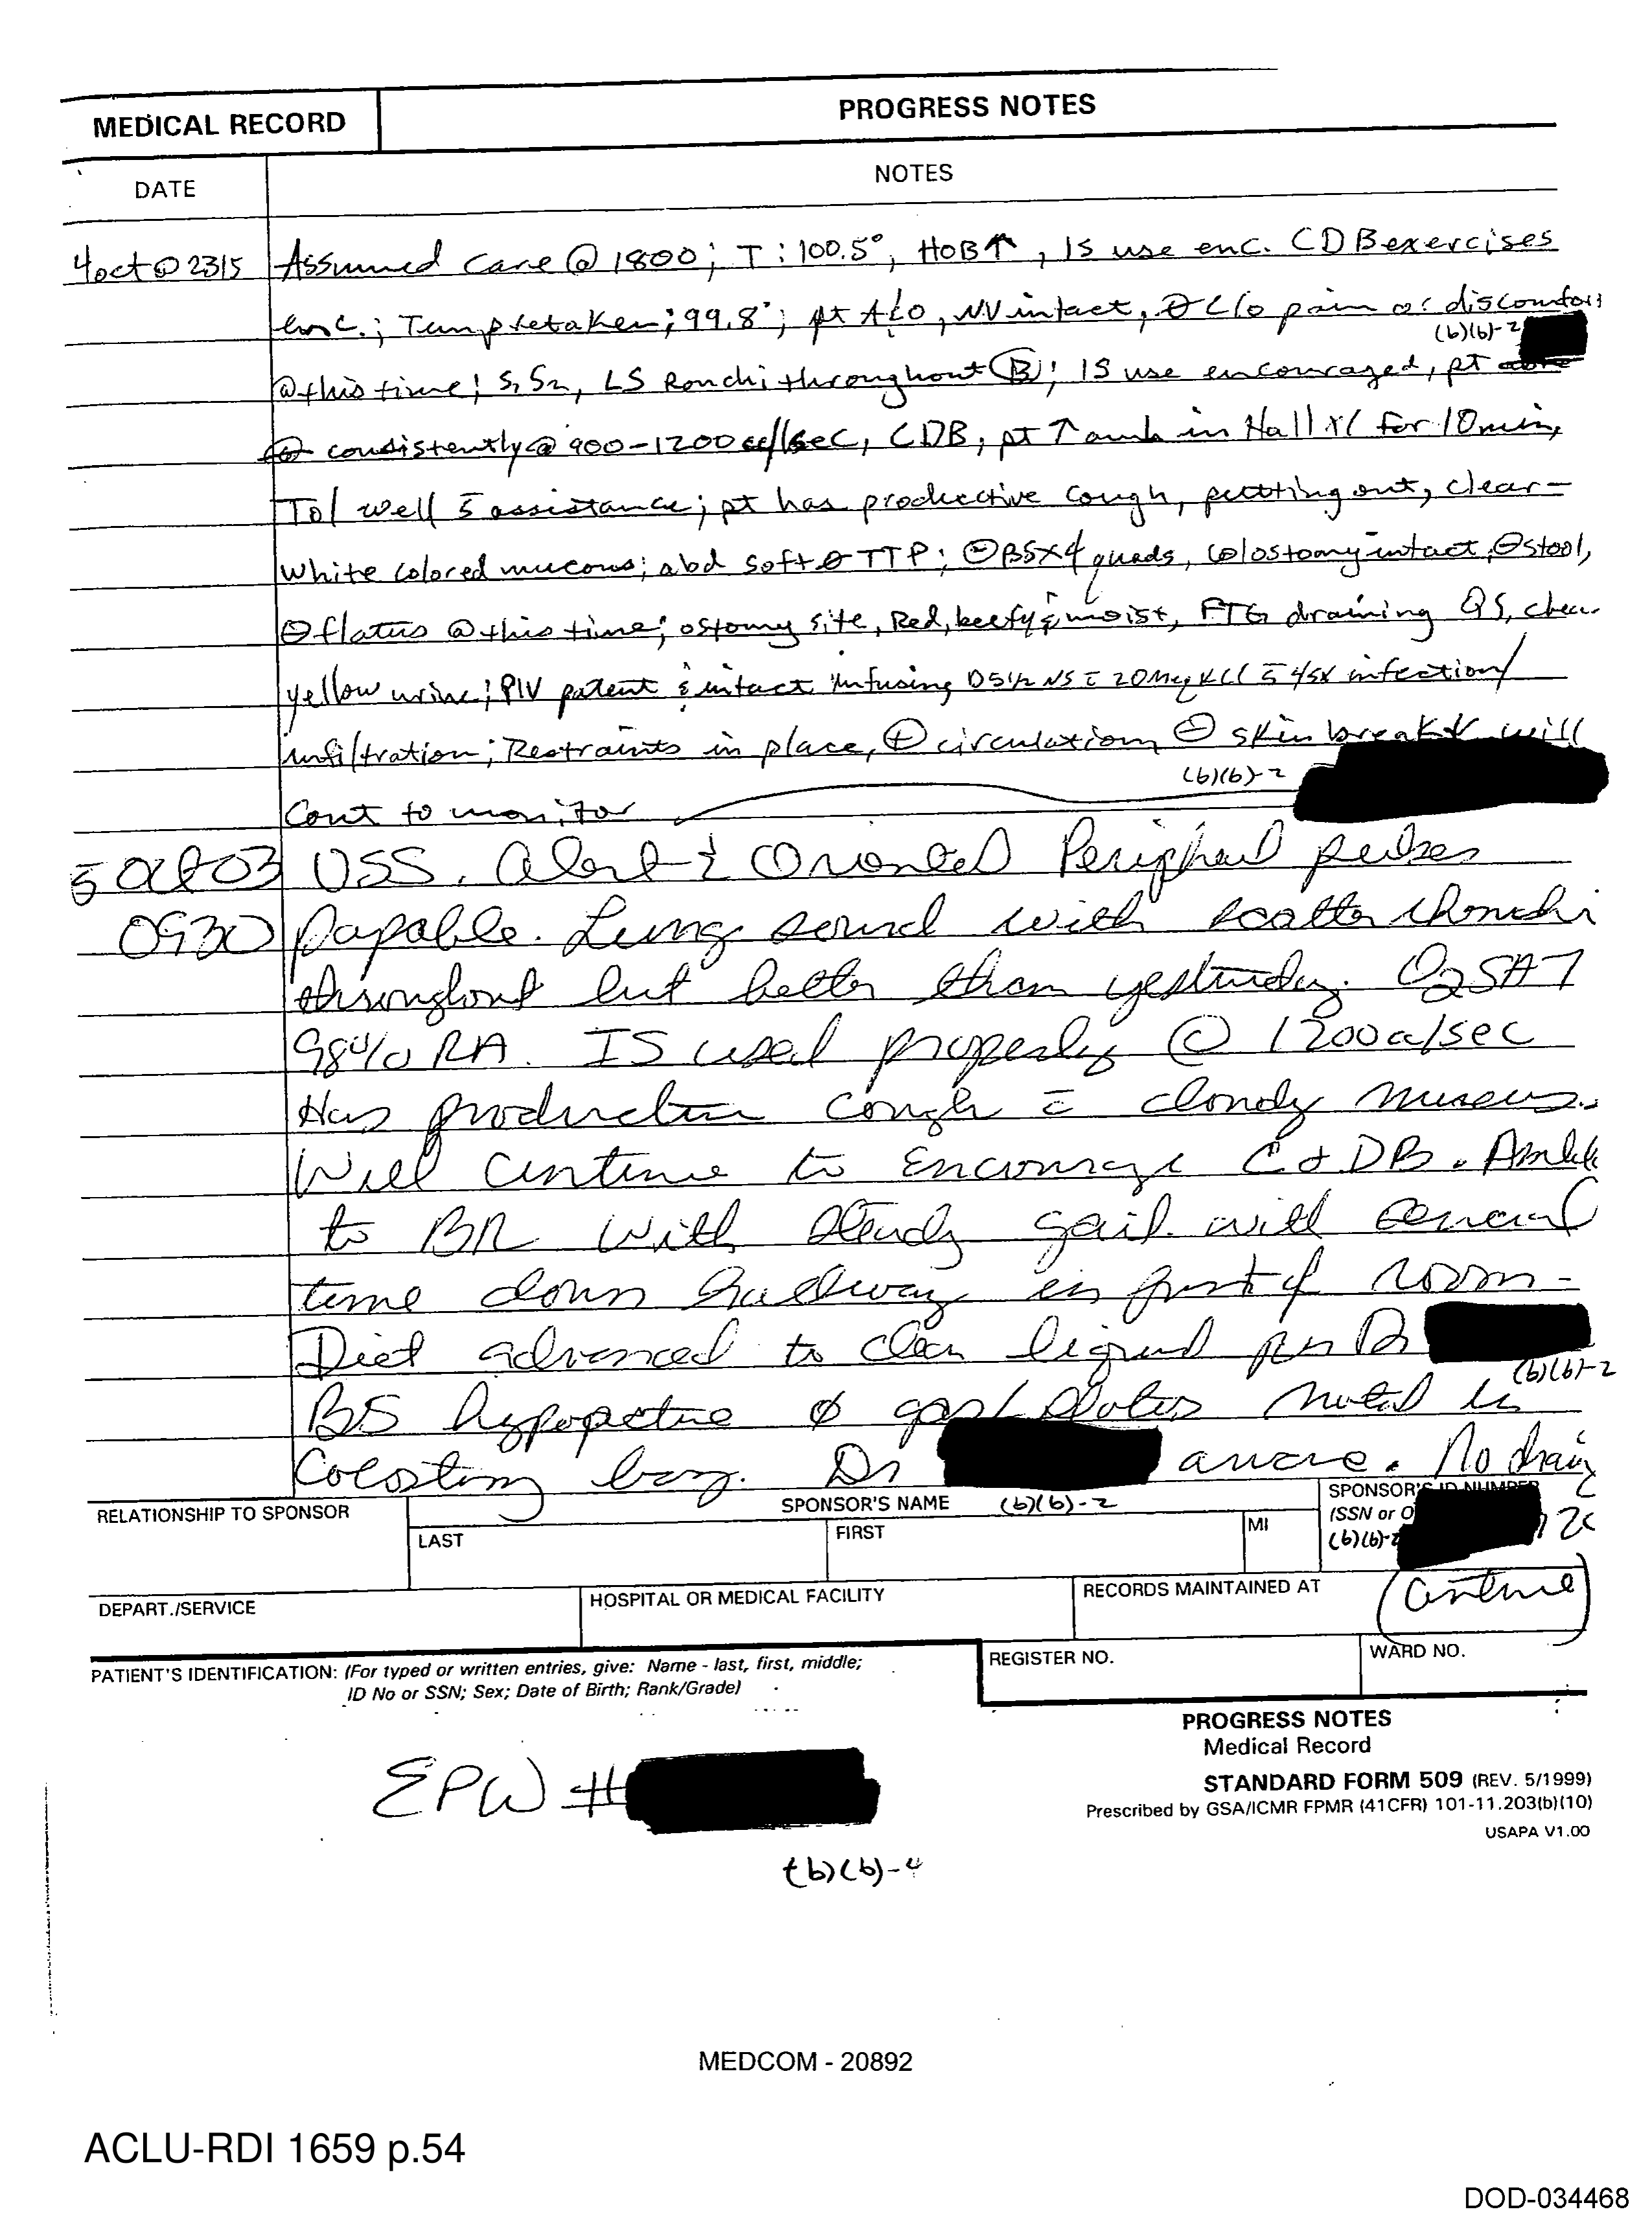 MEDICAL RECORD
PROGRESS NOTES
DATE
NOTES
4 oct @ 2315 Assumed care @ 1800; T: 100.5°, HOB↑, IS use enc. CDB exercises
enc.; Temp retaken; 99.8°; pt A&O, NV intact, ∅ c/o pain or discomfort
(b)(6)-2
@ this time; S1S2, LS Ronchi throughout (B); IS use encouraged, pt
consistently @ 900-1200 cc/sec, CDB, pt ↑ amb in Hall x1 for 10 min,
Tol well s̄ assistance; pt has productive cough, putting out, clear-
white colored mucous; abd soft ∅ TTP; ⊖BS x 4 quads, colostomy intact, ⊖stool,
⊖flatus @ this time; ostomy site, Red, beefy & moist, FTG draining QS, clear
yellow urine; PIV patent & intact infusing D5½NS c̄ 20 Meq KCl s̄ s/sx infection/
infiltration; Restraints in place, ⊕ circulation, ⊖ skin break↓ will
(b)(6)-2
Cont to monitor
5 Oct 03 VSS. Alert & Oriented Peripheral pulses
0930 papable. Lung sound with scatter rhonchi
throughout but better than yesterday. O2SAT
98% RA. IS used properly @ 1200cc/sec
Has productive cough c̄ cloudy mucus.
Will continue to encourage C & DB. Amb
to BR with steady gait. will
time down hallway in front of room-
Diet advanced to clear liquid per Dr
(b)(6)-2
BS hypoactive ∅ gas/flatus noted in
Colostomy bag. Dr aware. No
RELATIONSHIP TO SPONSOR
SPONSOR'S NAME (b)(6)-2
LAST
FIRST
MI
SPONSOR'S ID NUMBER
(SSN or O
(b)(6)-2
DEPART./SERVICE
HOSPITAL OR MEDICAL FACILITY
RECORDS MAINTAINED AT
(Continue)
PATIENT'S IDENTIFICATION: (For typed or written entries, give: Name - last, first, middle;
ID No or SSN; Sex; Date of Birth; Rank/Grade)
REGISTER NO.
WARD NO.
PROGRESS NOTES
Medical Record
STANDARD FORM 509 (REV. 5/1999)
Prescribed by GSA/ICMR FPMR (41CFR) 101-11.203(b)(10)
USAPA V1.00
EPW #
(b)(6)-4
MEDCOM - 20892
ACLU-RDI 1659 p.54
DOD-034468